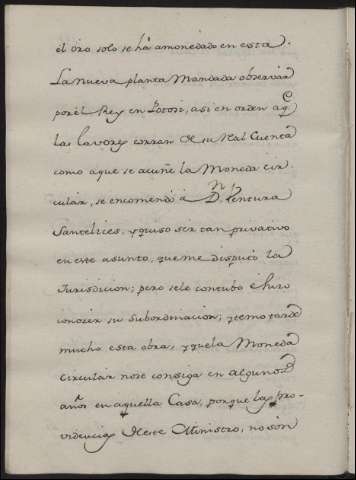 el oro solo se há amonedado en esta.
La nueva planta mandada observar
por el Rey en Potosi, asi en orden aq̃
las lavores corran de su Real Cuenta
como aque se acuñe la Moneda cir
cular, se encomendó á D.n Ventura
Santelices, y quiso ser tan privativo
en este asunto, que me disputó la
Jurisdicion; pero sele contubo é hizo
conozer su subordinacion; y temo tarde
mucho esta obra, y quela Moneda
circular nose consiga en algunos
años en aquella Casa, porque las pro-
videncias deeste Ministro, no són